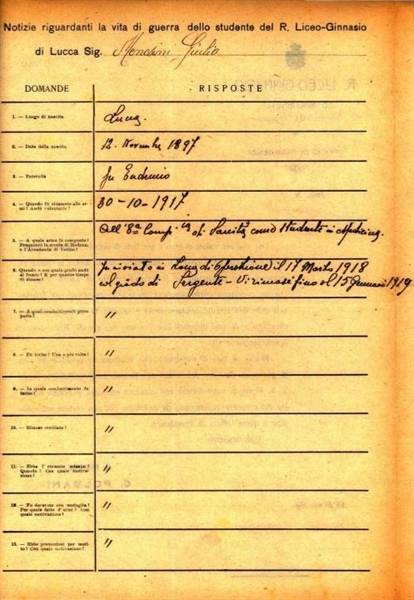 Notizie riguardanti la vita di guerra dello studente del R. Liceo-Ginnasio
di Lucca Sig. Giulio
DOMANDE
RISPOSTE
1. — Luogo di nascita
Lucca
2. — Data della nascita
12. Novembre 1897
3. — Paternità
fu
4. — Quando fu chiamato alle armi? Andò volontario?
30-10-1917
5. — A quale arma fu assegnato?
All' 8ª Comp. di Sanità come Studente in Medicina
6. — Quando e con quale grado andò al fronte? E per quanto tempo vi rimase?
fu inviato in Zona di Operazione il 17 Marzo 1918
col grado di Sergente - Vi rimase fino al 15 Gennaio 1919
7. — A quali combattimenti
"
8. — Fu ferito? Una o più volte?
"
9. — In quale combattimento fu ferito?
"
10. — Rimase mutilato?
"
11. — Ebbe
"
12. — Fu decorato con medaglia? Per quale fatto d'arme? Con quale motivazione?
"
13. — Ebbe promozioni per merito? Con quale motivazione?
"